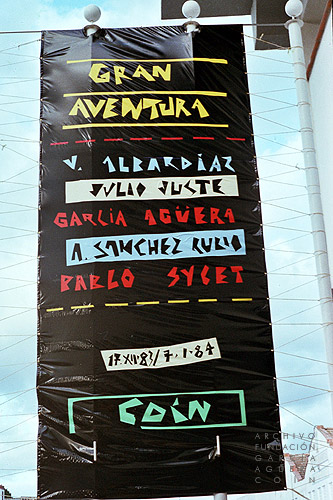 GRAN
AVENTURA
V. ALBARDÍAZ
JULIO JUSTE
GARCÍA AGÜERA
A. SANCHEZ RUBIO
PABLO SYCET
17·XII·83/7·1·84
COÍN
ARCHIVO
FUNDACIÓN
GARCÍA
AGÜERA
COÍN